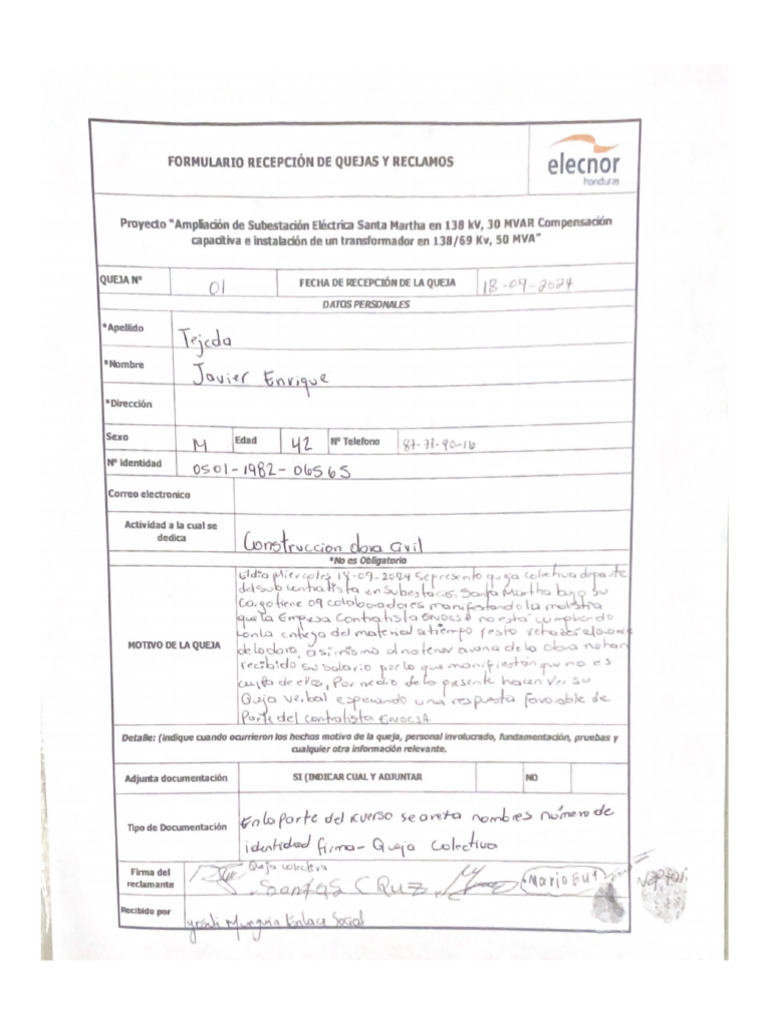 FORMULARIO RECEPCIÓN DE QUEJAS Y RECLAMOS
elecnor
honduras
Proyecto "Ampliación de Subestación Eléctrica Santa Martha en 138 kV, 30 MVAR Compensación
capacitiva e instalación de un transformador en 138/69 Kv, 50 MVA"
QUEJA Nº 01 FECHA DE RECEPCIÓN DE LA QUEJA 18-09-2024
DATOS PERSONALES
*Apellido Tejeda
*Nombre Javier Enrique
*Dirección
Sexo M Edad 42 Nº Telefono 87-73-90-16
Nº identidad 0501-1982-06565
Correo electronico
Actividad a la cual se
dedica
Construccion obra Civil
*No es Obligatorio
El dia Miercoles 18-09-2024 se presento queja colectiva de parte
del sub contratista en Subestacion Santa Martha bajo su
Cargo tiene 09 colaboradores manifestando la molestia
que la Empresa Contratista ENOCSA no esta cumpliendo
con la entrega del material a tiempo y esto
de la obra, asi mismo al no tener avance de la obra no han
recibido su salario por lo que manifiestan que no es
culpa de ellos, Por medio de la presente hacen ver su
Queja verbal esperando una respuesta favorable de
Parte del contratista ENOCSA.
MOTIVO DE LA QUEJA
Detalle: (indique cuando ocurrieron los hechos motivo de la queja, personal involucrado, fundamentación, pruebas y
cualquier otra información relevante.
Adjunta documentación SI (INDICAR CUAL Y ADJUNTAR NO
Tipo de Documentación
En la parte del reverso se nombres número de
identidad firma - Queja Colectiva
Firma del
reclamante
Queja colectiva
Santos CRUZ
Mario
Recibido por Munguia Enlace Social